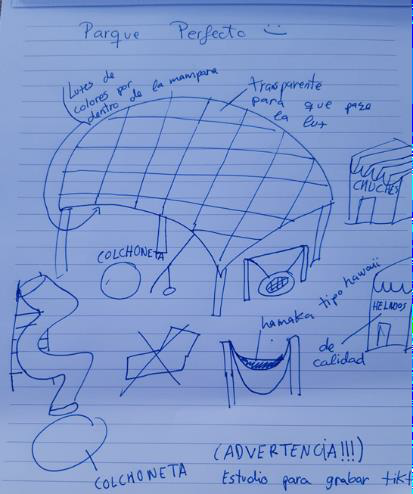 Parque Perfecto :)
Luces de
colores por
dentro de la mampara
trasparente
para que pase
la luz
CHUCHES
COLCHONETA
hamaka tipo hawaii
HELADOS
de
calidad
(ADVERTENCIA!!!)
COLCHONETA
Estudio para grabar tikt